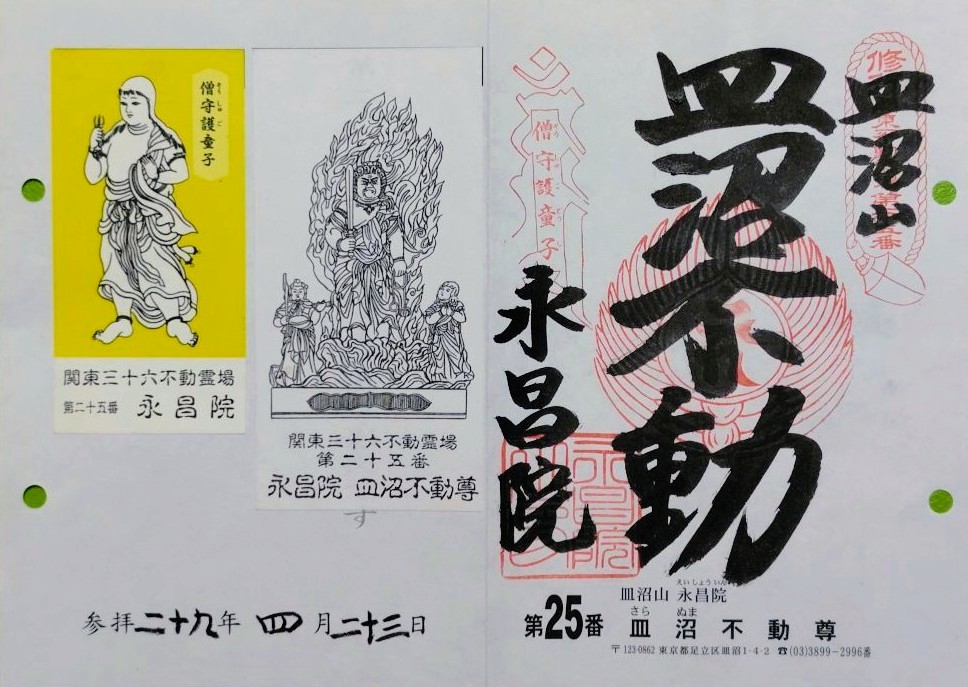 僧守護童子
そうしゅご
関東三十六不動霊場
第二十五番 永昌院
関東三十六不動霊場
第二十五番
永昌院 皿沼不動尊
す
参拝二十九年 四月二十三日
皿沼山
皿沼不動
永昌院
僧守護童子
皿沼山 永昌院
えいしょういん
第25番 皿沼不動尊
さら ぬま
〒123-0862 東京都足立区皿沼1-4-2 ☎(03)3899-2996番